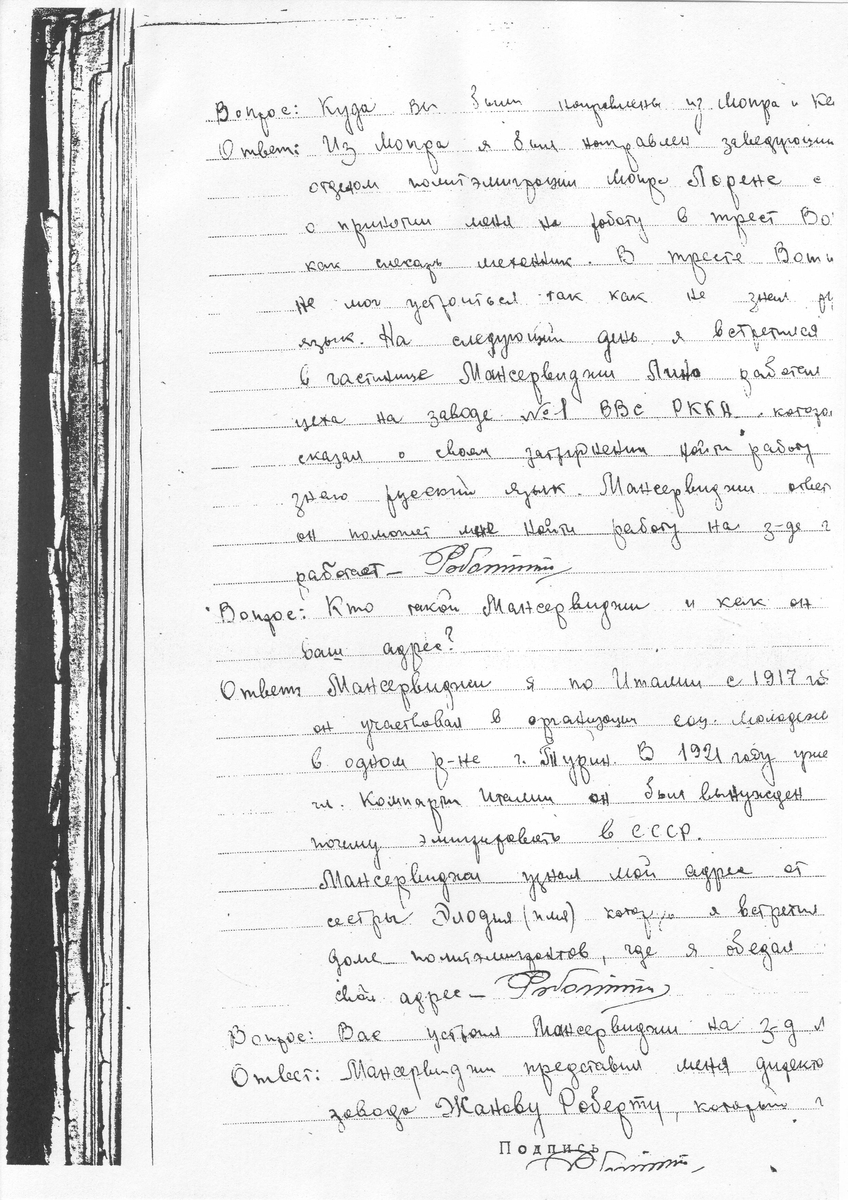 Вопрос: Куда вы были направлены из Мопра и Ке
Ответ: Из Мопра я был направлен заведующим
отделом политэмиграции Мопра Лорене с
о принятии меня на работу в трест Во
как слесарь механик. В тресте
не мог устроиться так как не знал
язык. На следующий день я встретился
в гастинице Мансервиджи Лино работал
цеха на заводе №1 ВВС РККА
сказал о своем затруднении найти работу
знаю русский язык. Мансервиджи ответ
он поможет мне найти работу на з-де г
работает – Роботти
Вопрос: Кто такой Мансервиджи и как он
ваш адрес?
Ответ: Мансервиджи я по Италии с 1917 го
он участвовал в организации соц. молодеже
в одном р-не г. Турин. В 1921 году уже
чл. Компарти Италии он был вынужден
почему эмигрировать в СССР.
Мансервиджи узнал мой адрес от
сестры Элодия (имя) я встретил
доме политэмигрантов, где я обедал
свой адрес – Роботти
Вопрос: Вас устроил Мансервиджи на з-д
Ответ: Мансервиджи представил меня директо
завода Жанову Роберту, который
Подпись
Роботти